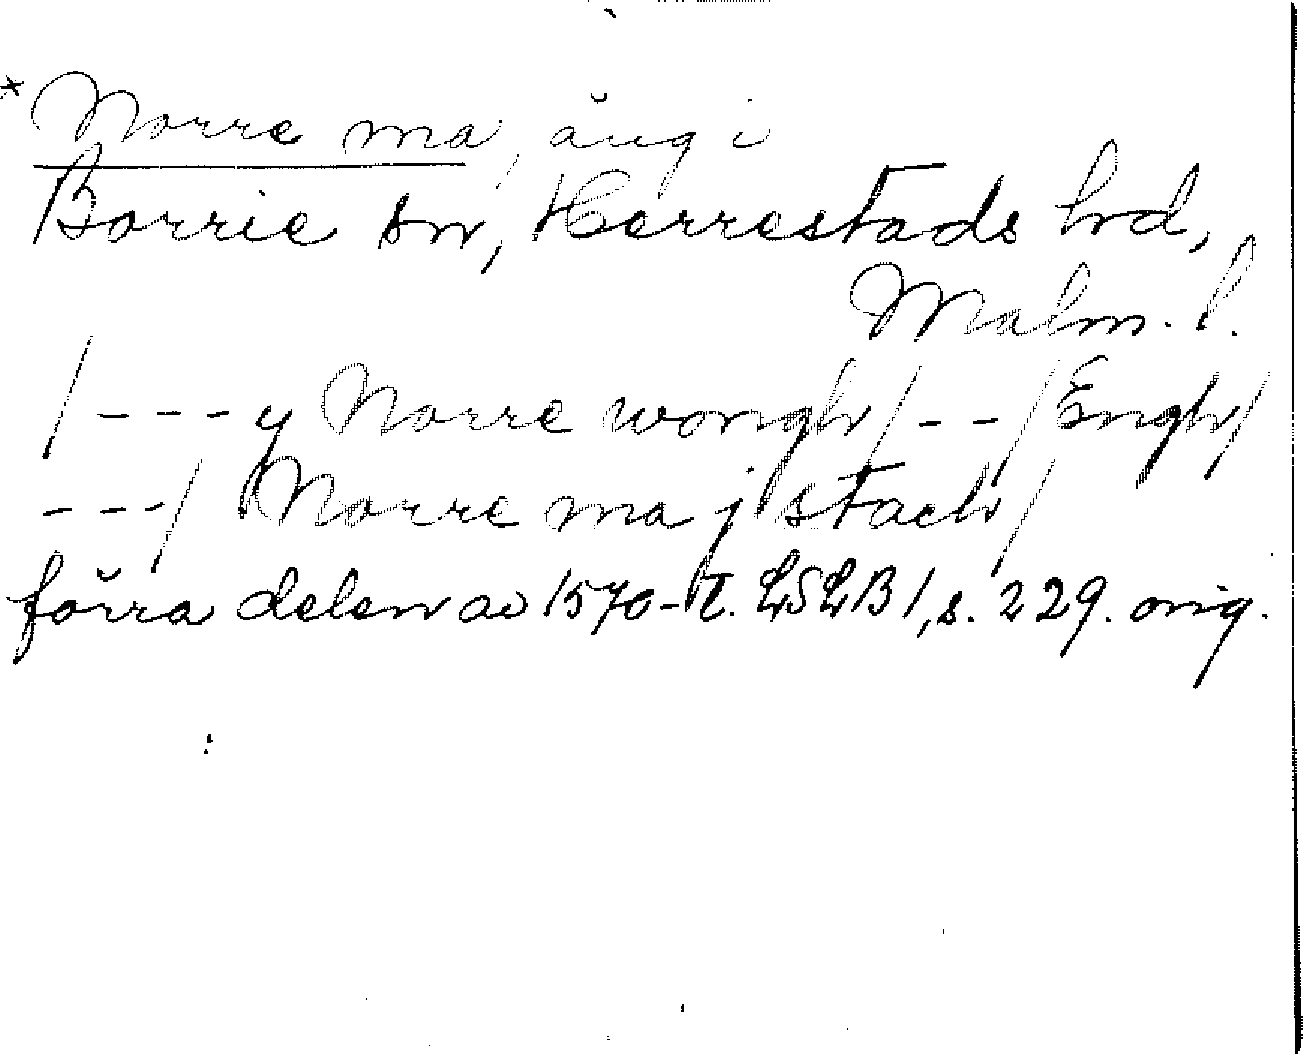 * Norre ma, äng i
Borrie sn, Herrestads hd,
Malm. l.
/---y Norre wongh/--/Engh/
---/ Norre ma j stach/
förra delen av 1570-t. LSLB 1, s. 229. orig.